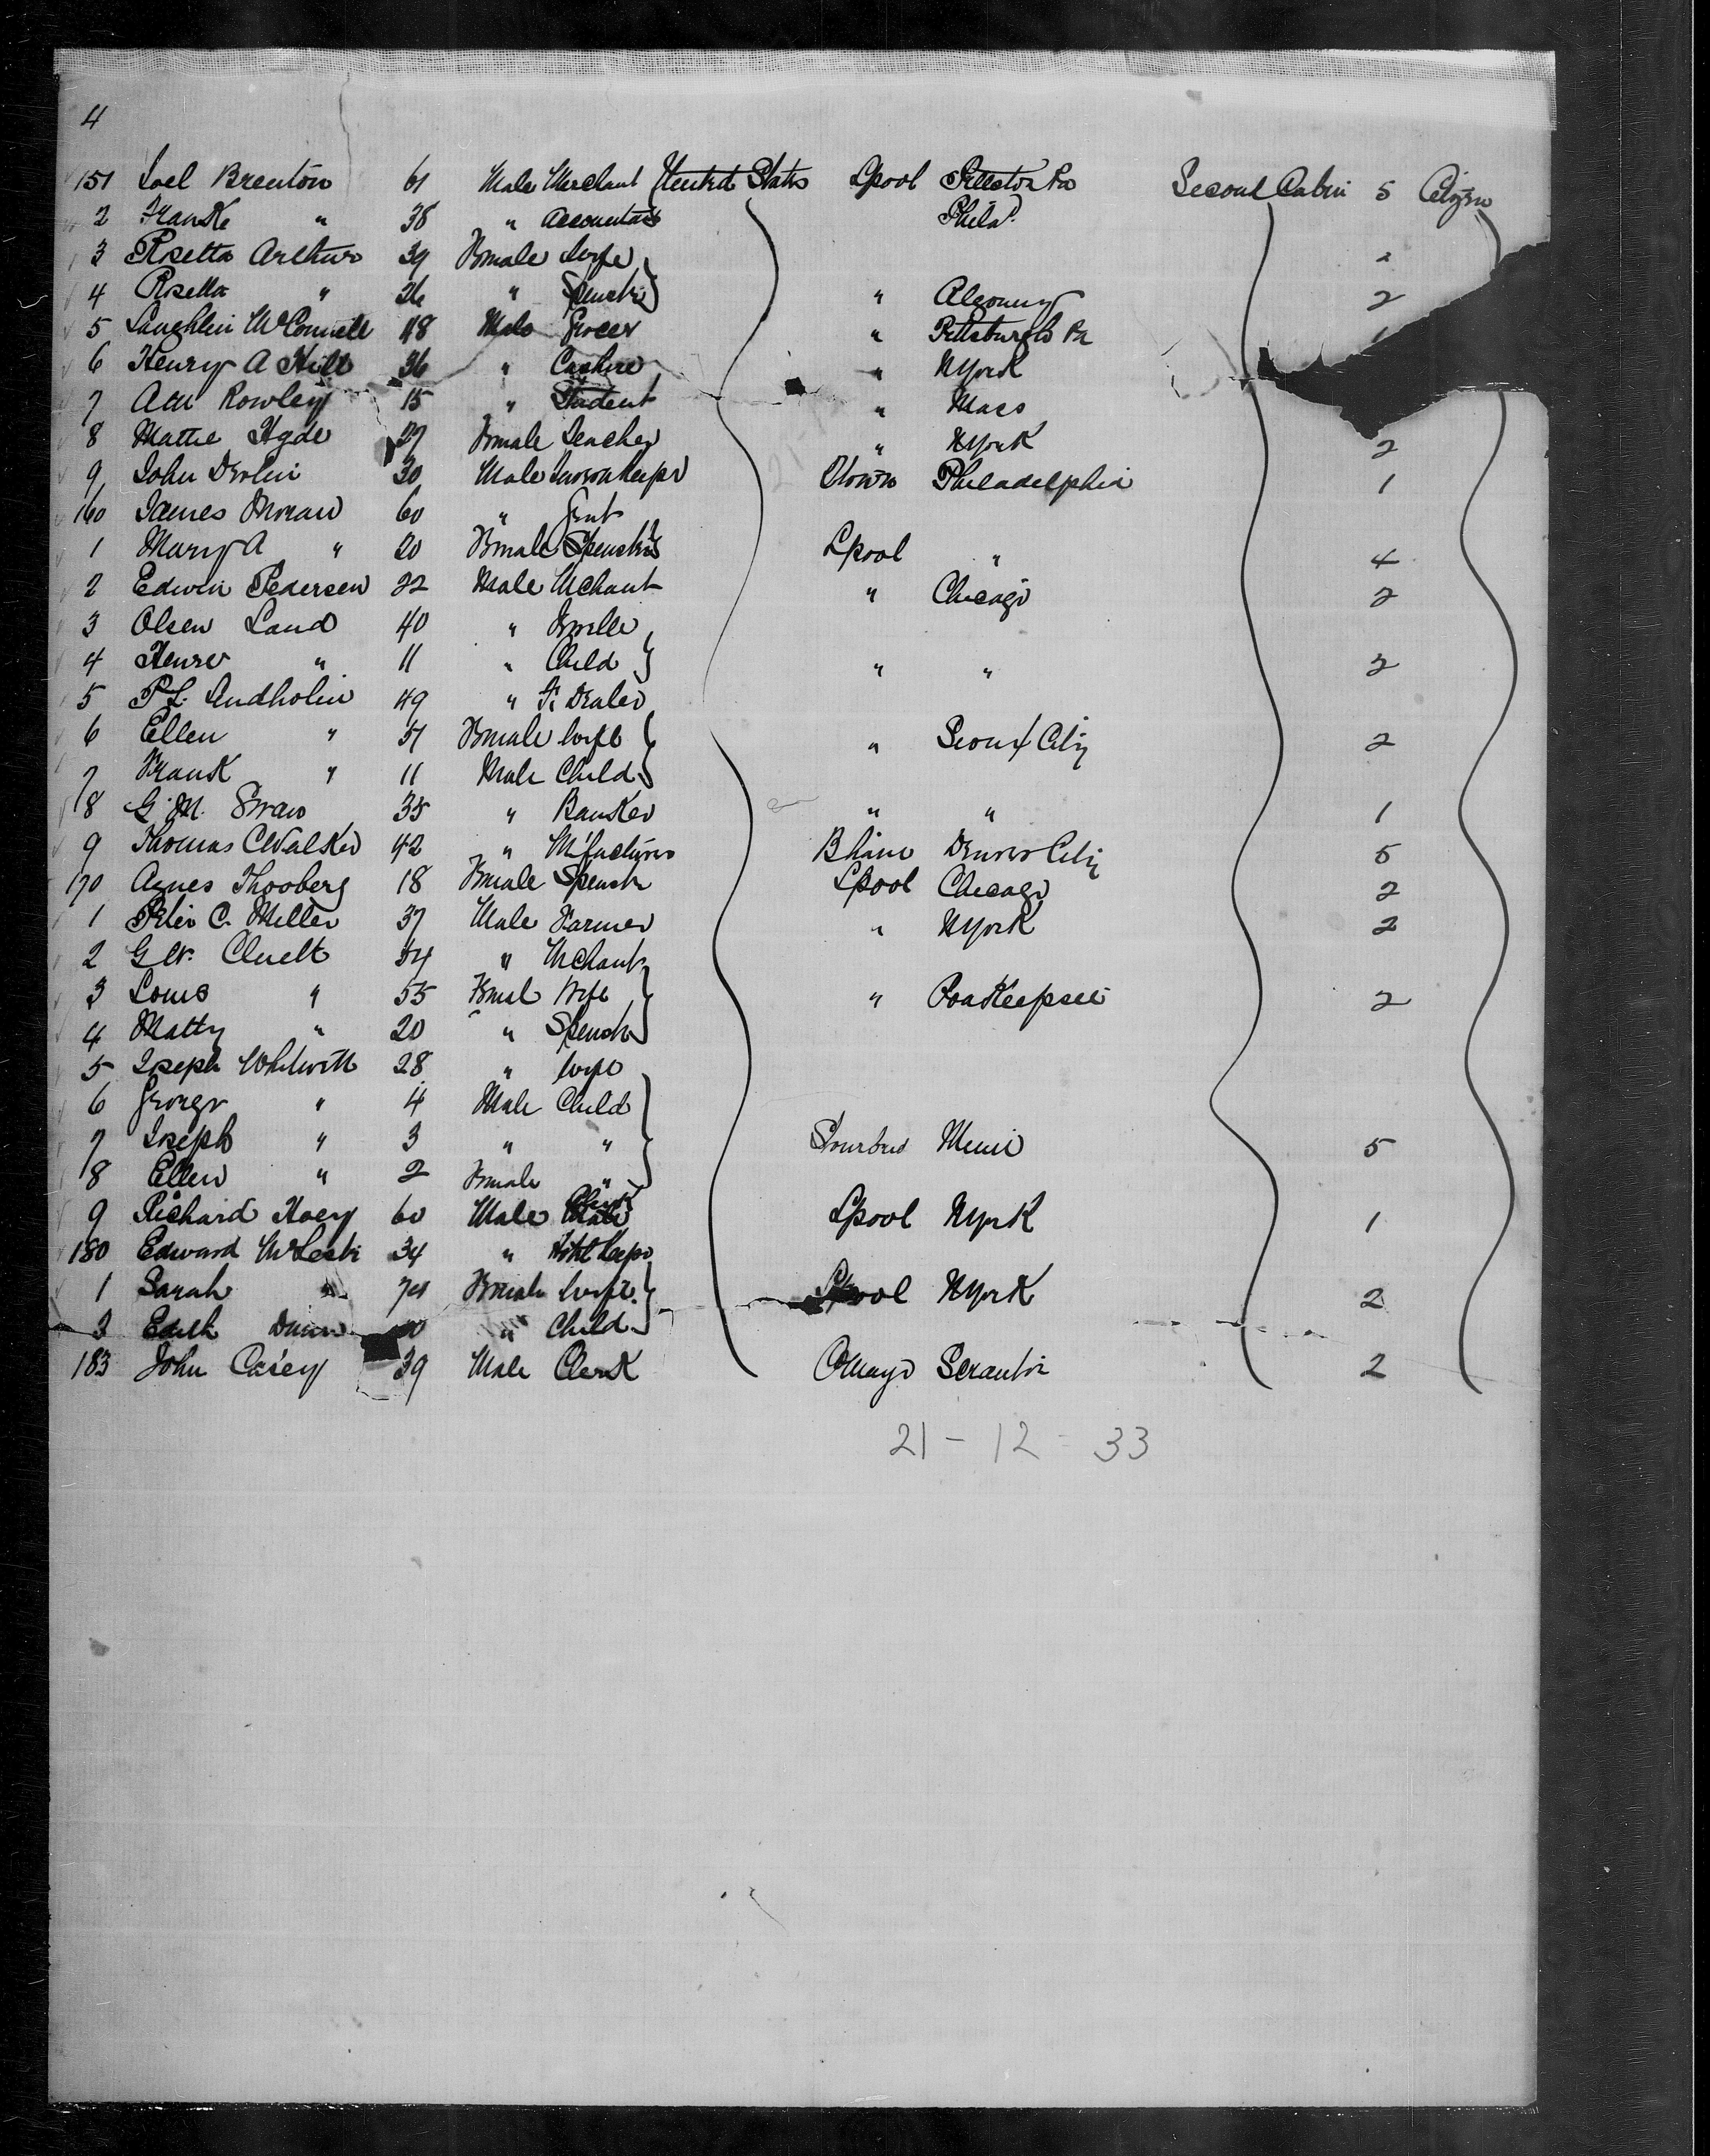 4
151 Joel Brenton 61 Male Merchant United States Lpool Pittston Pa Second Cabin 5 Citizen
2 Frank " 38 " Accountant Phila
3 Rosetta Arthur 39 Female Wife
4 Rosetta " 26 " Spinster " 2
5 Laughlin McConnell 48 Male Grocer " Pittsburgh Pa
6 Henry A Hill 36 " " NYork
7 Rowley 15 " Student " Mass
8 Mattie Hyde 27 Female Teacher " NYork 2
9 John Devlin 30 Male Qtown Philadelphia 1
160 James Moran 60 " Gent
1 Mary A " 20 Female Spinster Lpool " 4
2 Edwin Pedersen 22 Male Mchant " Chicago 2
3 Olsen Land 40 "
4 " 11 " Child " " 2
5 P L. Lindholm 49 " Dealer
6 Ellen " 51 Female Wife " Sioux City 2
7 Frank " 11 Male Child
8 G. M. Swan 35 " Banker " " 1
9 Thomas C Walker 42 " Mfacturer Bham Denver City 5
170 Agnes Thooberg 18 Female Spinstr Lpool Chicago 2
1 Peter C. Miller 37 Male Farmer " NYork 2
2 G W. Cluett 54 " Mchant
3 Louis " 55 Femal Wife " Poakeepsie 2
4 Matty " 20 " Spinstr
5 Joseph 28 " Wife
6 George " 4 Male Child
7 Joseph " 3 " " 5
8 Ellen " 2 Female "
9 Richard Hoey 60 Male Clerk Lpool NYork 1
180 Edward 34 " Hotel Keepr
1 Sarah " Female Wife Lpool NYork 2
3 Edith " Child
183 John Casey 39 Male Clerk Scranton 2
21 - 12 - 33